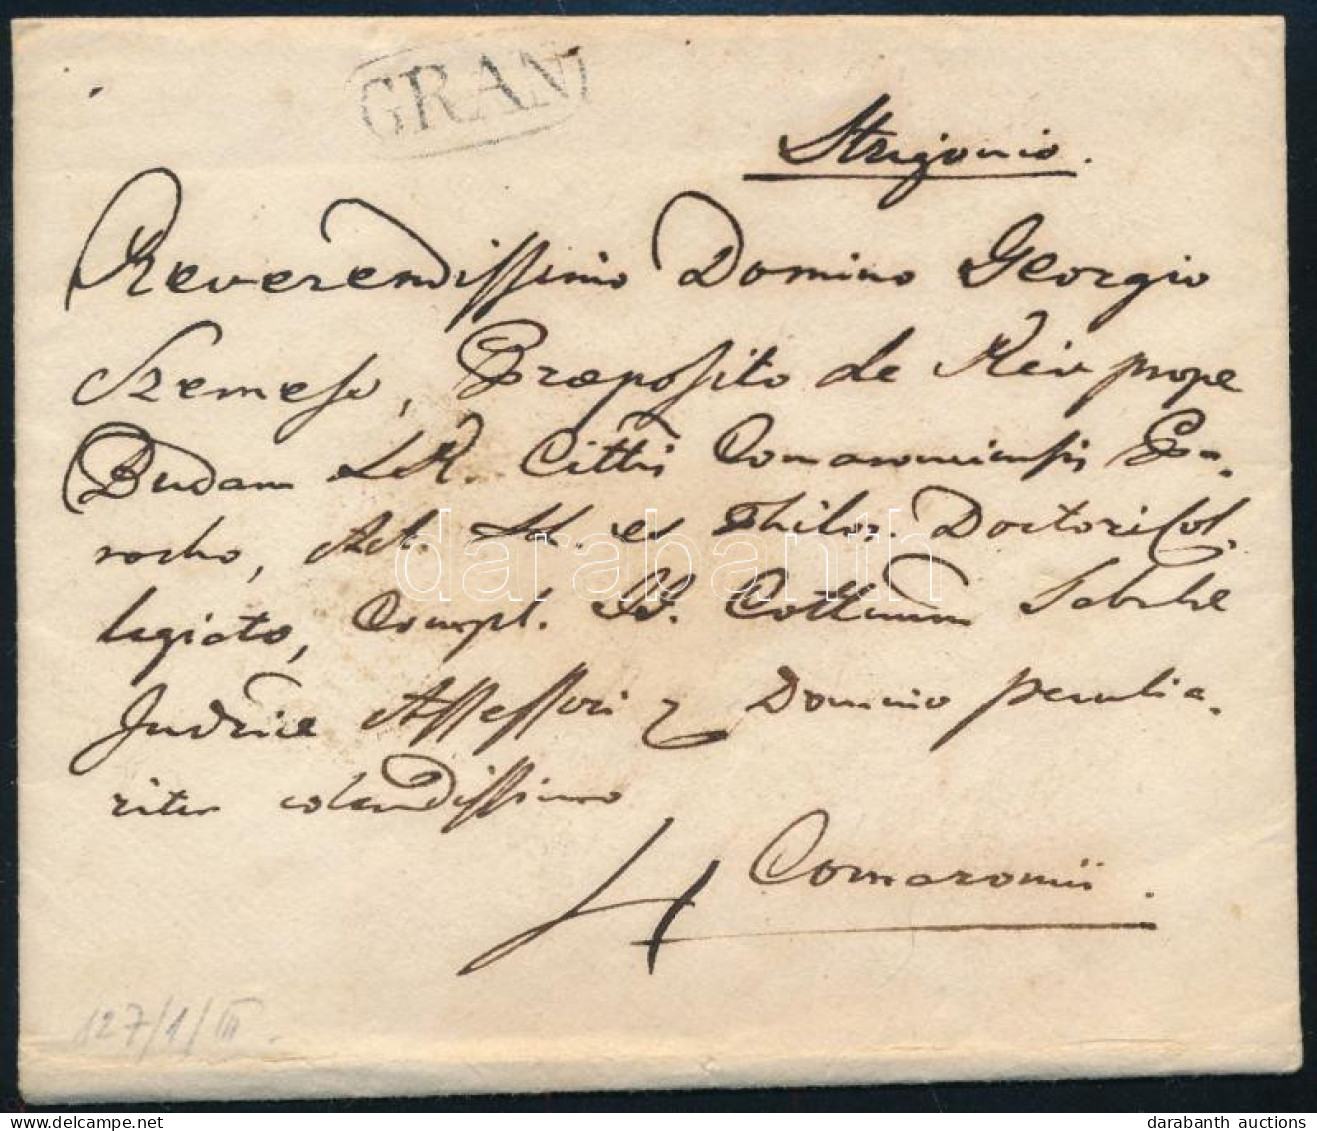 GRAN
Strigonio.
Reverendissimo Domino Georgio
Szemeso, Praeposito de Reiv prope
Budam L.R. Cittis Comaromiensis Pa-
rocho, AA. LL. et Philos. Doctori Col-
legiato, Compl. II. Cottuum Tabulae
Judriae Assessori Domino peculia-
riter colendissimo
4 Comaromii.
127/1/III.
darabanth
darabanth auctions